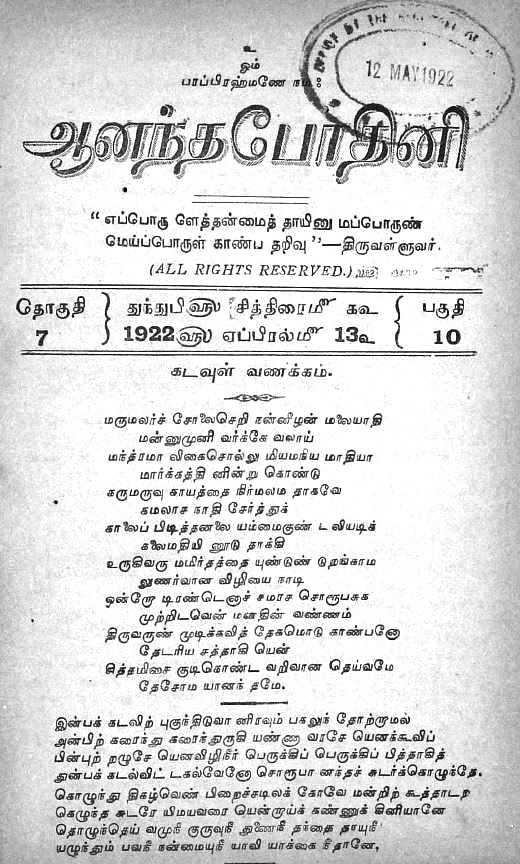 ஓம்
பரப்பிரஹ்மணே நம:
OFFICE OF THE
12 MAY 1922
ஆனந்தபோதினி
“எப்பொரு ளெத்தன்மைத் தாயினு மப்பொருண்
மெய்ப்பொருள் காண்ப தறிவு”—திருவள்ளுவர்.
(ALL RIGHTS RESERVED.)
தொகுதி 7
துந்துபி௵ சித்திரைமீ கவ
1922௵ ஏப்ரல்மீ 13உ
பகுதி 10
கடவுள் வணக்கம்.
மருமலர்ச் சோலைசெறி நன்னீழன் மலையாதி
மன்னுமுனி வர்க்கே வலாய்
மந்த்ரமா லிகைசொல்லு மியமநிய மாதியா
மார்க்கத்தி னின்று கொண்டு
கருமருவு காயத்தை நிர்மலம தாகவே
கமலாச நாதி சேர்த்துக்
காலைப் பிடித்தனலை யம்மைகுண் டலியடிக்
கலைமதியி னூடு தாக்கி
உருகிவரு மமிர்தத்தை யுண்டுண் டுறங்காம
லுணர்வான விழியை நாடி
ஒன்றோ டிரண்டெனாச் சமரச சொரூபசுக
முற்றிடவென் மனதின் வண்ணம்
திருவருண் முடிக்கவித் தேகமொடு காண்பனோ
தேடரிய சத்தாகி யென்
சித்தமிசை குடிகொண்ட வறிவான தெய்வமே
தேசோம யானந் தமே.
இன்பக் கடலிற் புகுந்திடுவா னிரவும் பகலுந் தோற்றாமல்
அன்பிற் கரைந்து கரைந்துருகி யண்ணா வரசே யெனக்கூவிப்
பின்புற் றழுசே யெனவிழிநீர் பெருக்கிப் பெருக்கிப் பித்தாகித்
துன்பக் கடல்விட் டகல்வேனோ சொரூபா னந்தச் சுடர்க்கொழுந்தே.
கொழுந்து திகழ்வெண் பிறைச்சடிலக் கோவே மன்றிற் கூத்தாடற்
கெழுந்த சுடரே யிமயவரை யென்றாய்க் கண்ணுக் கினியானே
தொழுந்தெய் வமுநீ குருவுநீ துணைநீ தந்தை தாயுநீ
யழுந்தும் பவநீ நன்மையுநீ யாவி யாக்கை நீதானே.